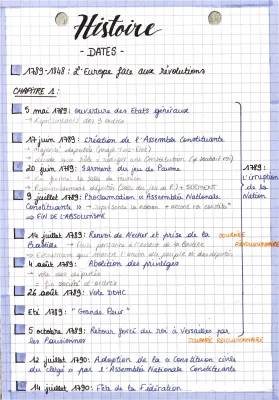 Histoire
- DATES -
1789-1848 : L'Europe face aux révolutions
CHAPITRE 1 :
5 mai 1789 : ouverture des Etats généraux
17 juin 1789 : création de l'Assemblée Constituante
20 juin 1789 : Serment du jeu de Paume
9 juillet 1789 : Proclamation de l'Assemblée Nationale
Constituante
⇒ FIN DE L'ABSOLUTISME
1789 :
l'irruption
de la
Nation
14 juillet 1789 : Renvoi de Necker et prise de la
Bastille
JOURNÉE
RÉVOLUTIONNAIRE
4 août 1789 : Abolition des privilèges
26 août 1789 : Vote DDHC
Eté 1789 : "Grande Peur"
5 octobre 1789 : Retour forcé du roi à Versailles par
les Parisiennes
JOURNÉE RÉVOLUTIONNAIRE
12 juillet 1790 : Adoption de la « Constitution civile
du clergé » par l'Assemblée Nationale Constituante
14 juillet 1790 : Fête de la Fédération